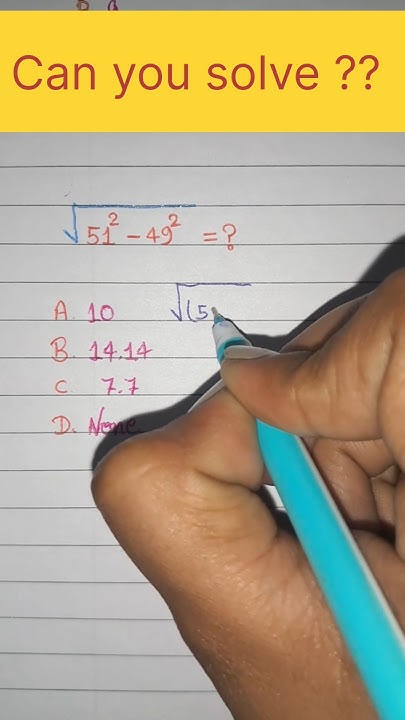 Can you solve ??
√51² - 49² = ?
A. 10
√(5
B. 14.14
C. 7.7
D. None